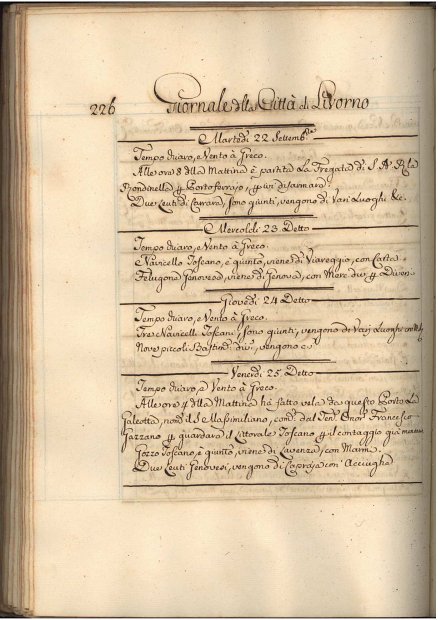 226 Giornale della Città di Livorno
Martedì 22 Settemb.re
Tempo chiaro, e Vento à Greco.
Alle ore 8 della Mattina è partita la Fregata di S. A. Rle la
Rondinella p Portoferrajo, p ivi disarmarsi.
Due Leuti di Carrara, sono giunti, vengono di Vari Luoghi &c.
Mercoldì 23 Detto
Tempo chiaro, e Vento à Greco.
Navicello Toscano, è giunto, viene di Viareggio, con Carta
Felugone Genovese, viene di Genova, con Merc. div. p Diversi
Giovedì 24 Detto
Tempo chiaro, e Vento à Greco.
Tre Navicelli Toscani, sono giunti, vengono di Varj Luoghi con
Nove piccoli Bastim.ti div. vengono
Venerdì 25 Detto
Tempo chiaro, e Vento à Greco.
Alle ore 4 della Mattina hà fatto vela da questo Porto La
Galeotta, nom. il S. Massimiliano, com. dal Ten. Onor. Francesco
Gazzano p guardare il Littorale Toscano p il contaggio già
Gozzo Toscano, è giunto, viene di Lavenza, con Marmi
Due Leuti Genovesi, vengono di Capraja con Acciughe